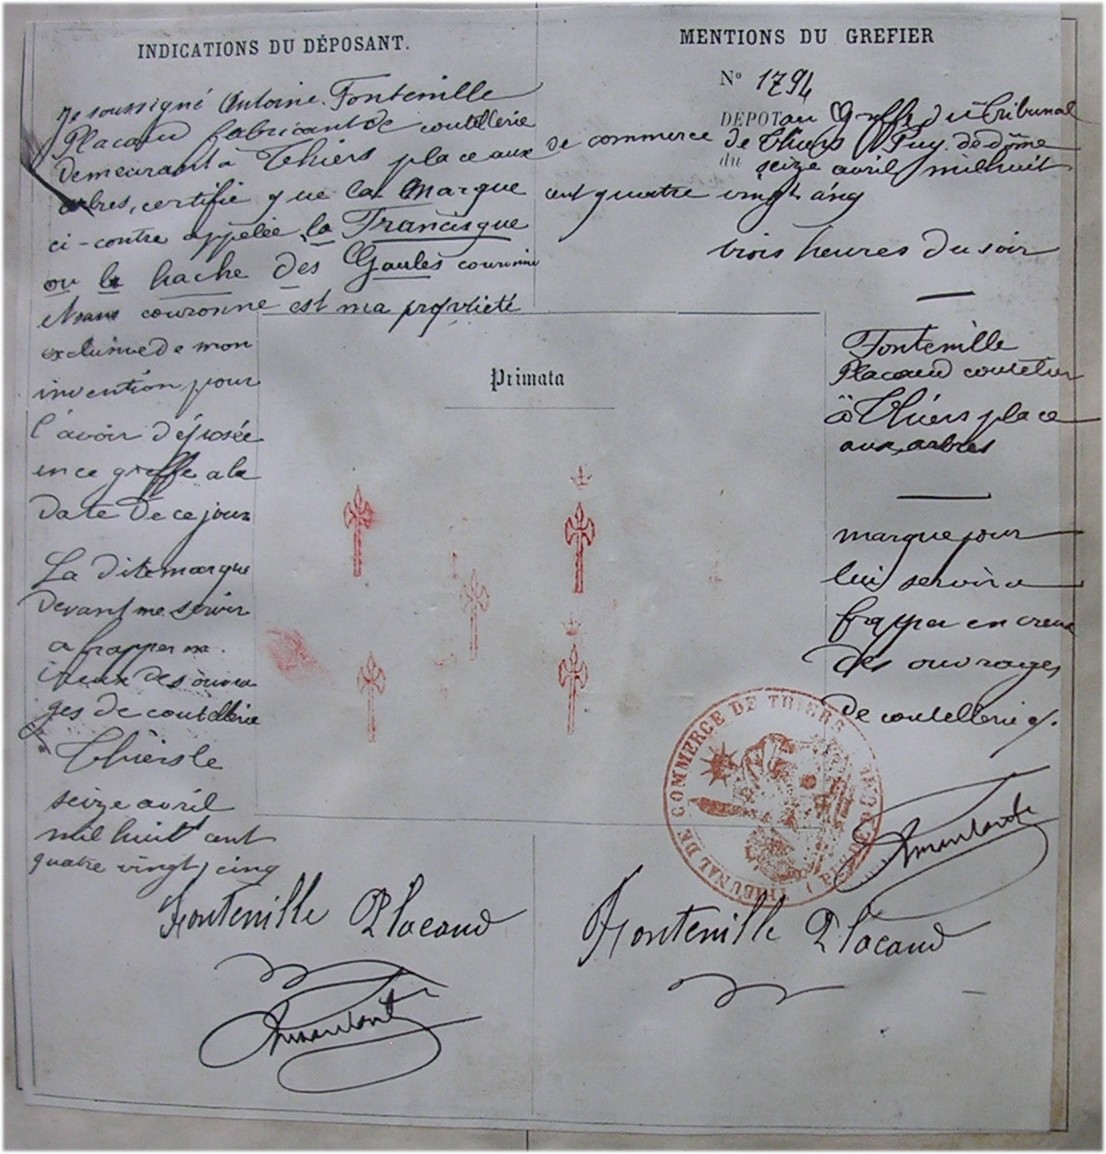 INDICATIONS DU DÉPOSANT.
Je soussigné Antoine Fontenille
Placaud fabricant de coutellerie
demeurant à Thiers place aux
arbres, certifie que la marque
ci-contre appelée la Francisque
ou la hache des Gaules couronné
et sans couronne est ma propriété
exclusive de mon
invention pour
l'avoir déposée
en ce greffe a la
date de ce jour
La dite marque
devant me servir
a frapper en
creux des ouvra
ges de coutellerie
Thiers le
seize avril
mil huit cent
quatre vingt cinq
Fontenille Placaud
MENTIONS DU GREFIER
N° 1794
DÉPOT au Greffe du Tribunal
de commerce de Thiers Puy-de-dôme
du seize avril mil huit
cent quatre vingt cinq
trois heures du soir
Fontenille
Placaud coutelier
à Thiers place
aux arbres
marque pour
lui servir a
frapper en creux
des ouvrages
de coutellerie
Primata
TRIBUNAL DE COMMERCE DE THIERS
Fontenille Placaud